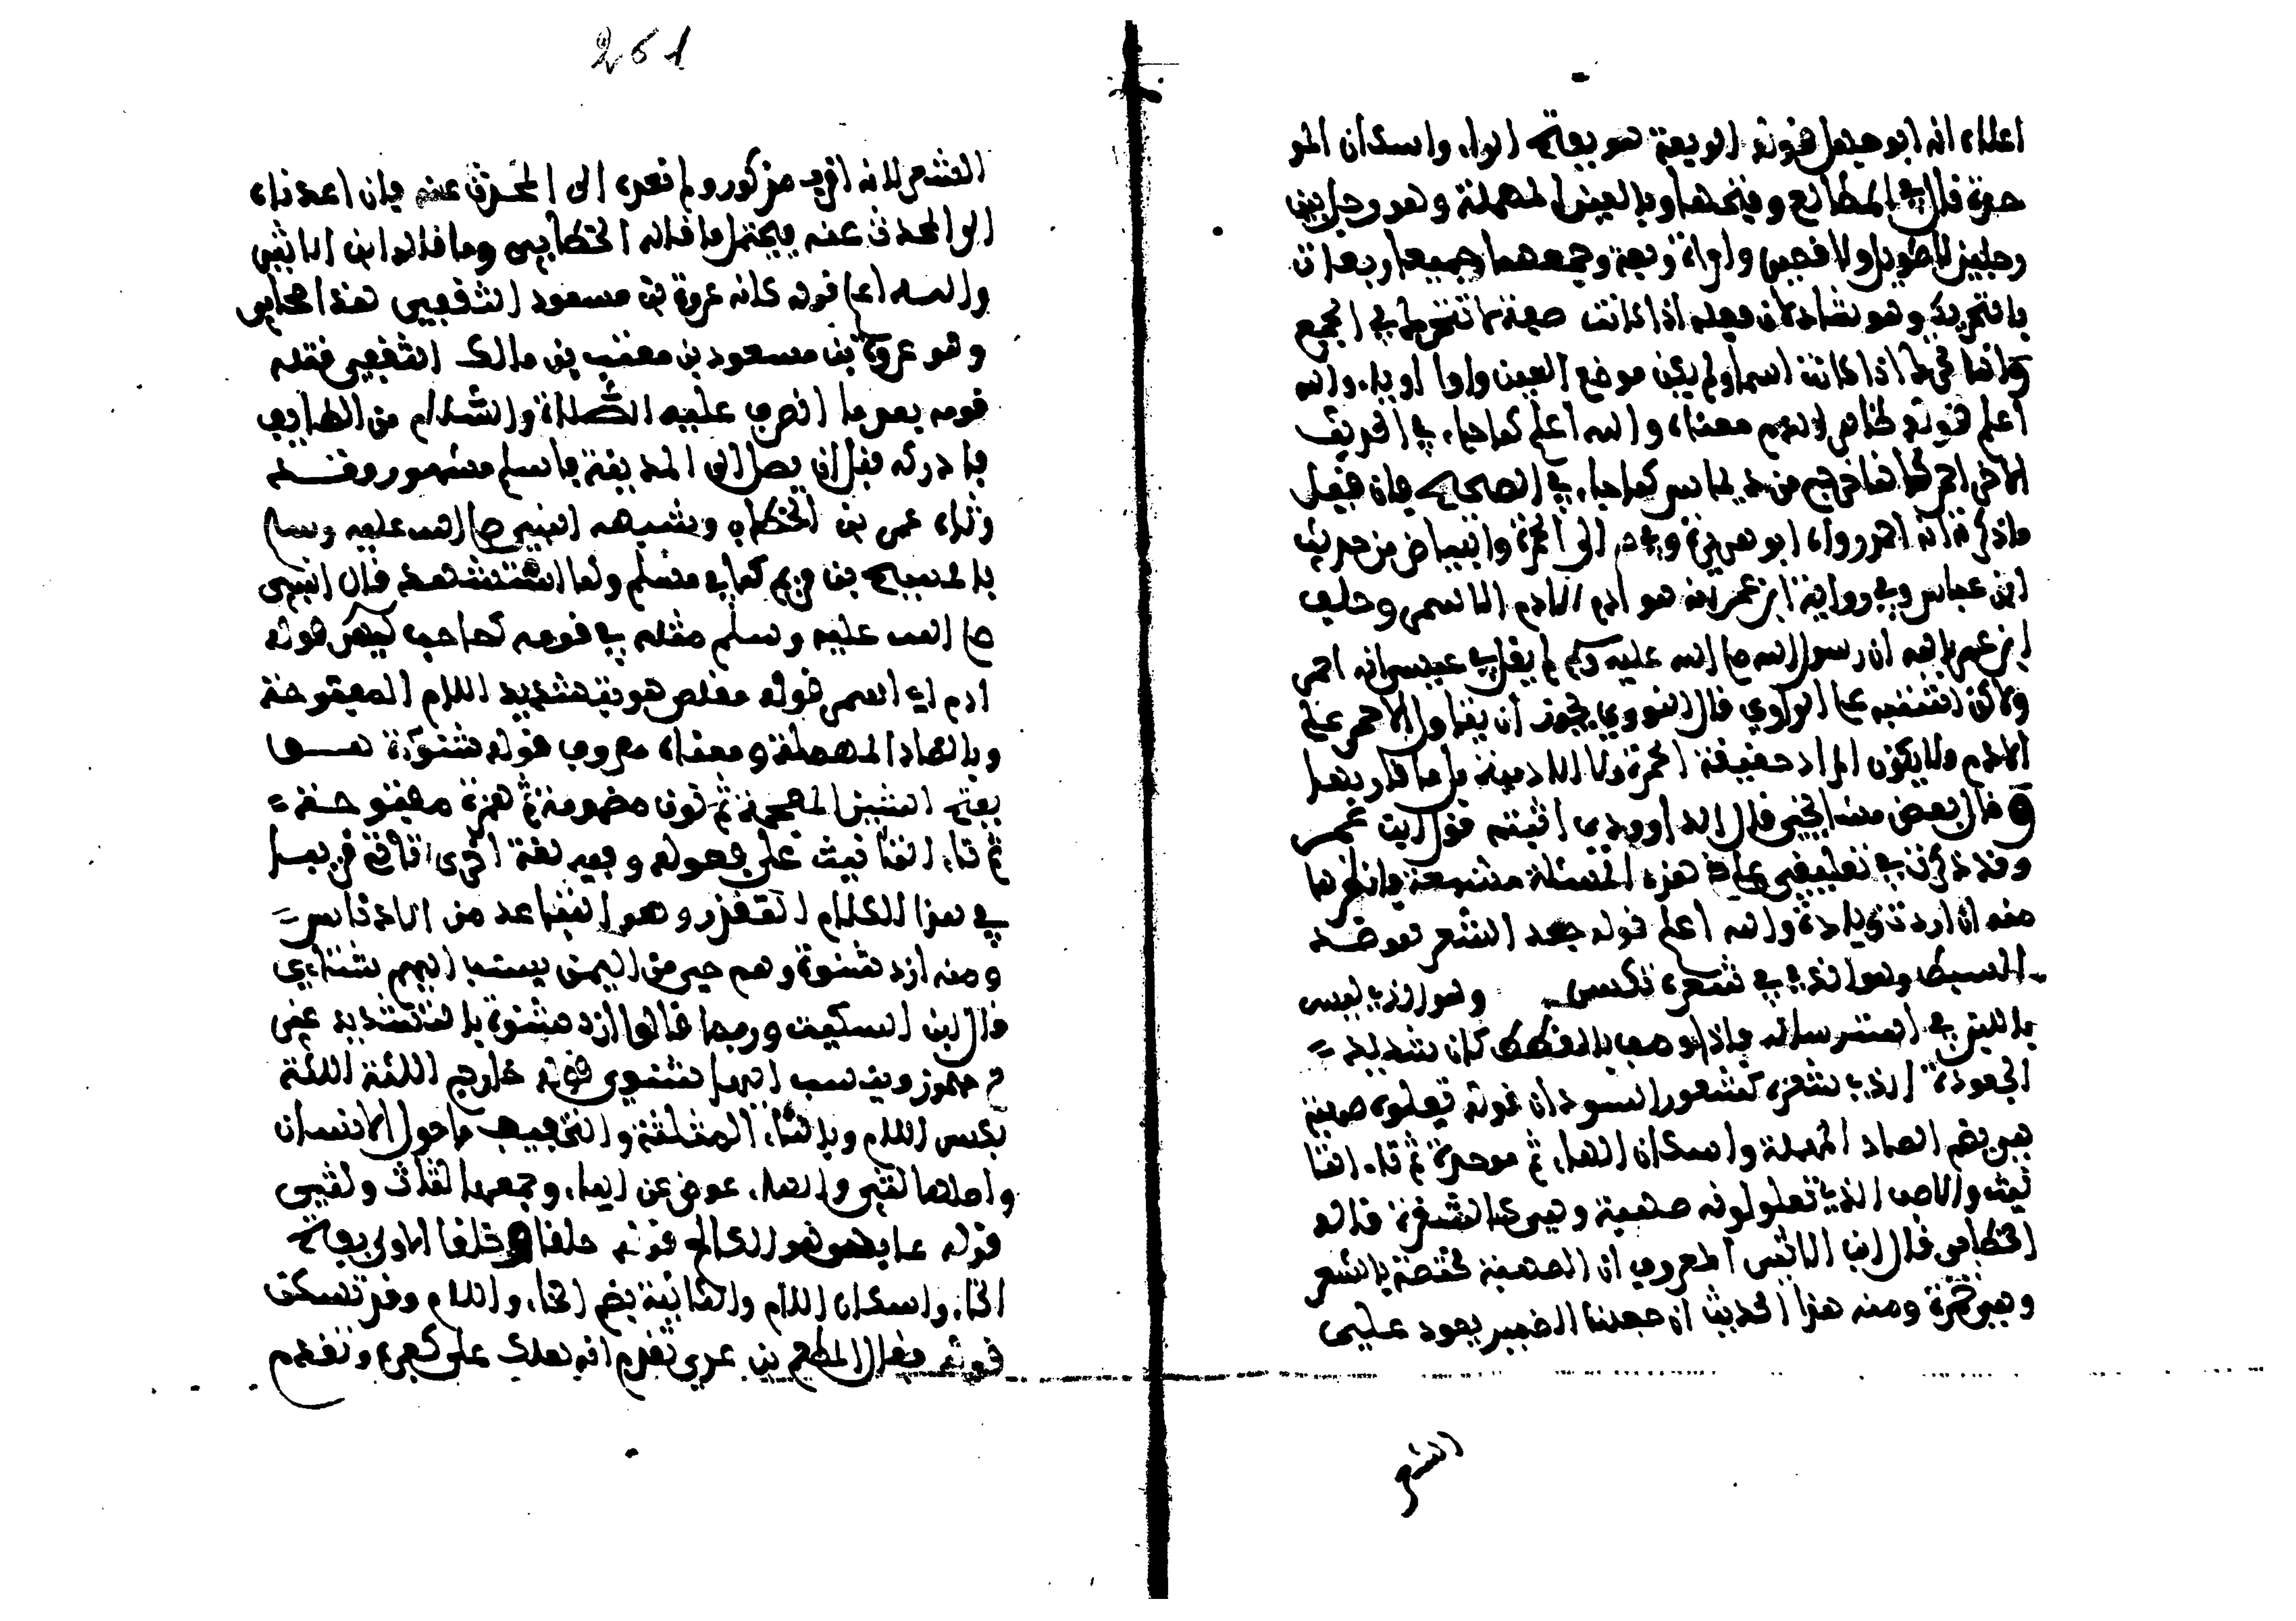 اعلاه انه ابو جهل قوله الربعة هو بفتح الراء واسكان المو
حدة قال في المطالع وفتحها وبالعين المهملة وهو رجل بين
رجلين لا طويل ولا قصير وامراة ربعة وجمعهما جميعا ربعات
بالتحريك وهو شاذ لان فعلة اذا كانت صفة لا تحرك في الجمع
وانما تحرك اذا كانت اسما ولم يكن موضع العين واوا او ياء والله
اعلم قوله ادم معناه والله اعلم كما جاء في
الاخر احمر كانما خرج من ديماس كما جاء في الصحيح فان قيل
ما ذكرته انه احمر رواه ابو هريرة والى الحمرة والبياض من حديث
ابن عباس وفي رواية ابن عمر انه هو ادم الادم الاسمر وحلف
ابن عمر بالله ان رسول الله صلى الله عليه وسلم لم يقل في عيسى انه احمر
ولاكن اشتبه على الراوي قال النووي يجوز ان يتاول الاحمر على
الادم ولا يكون المراد حقيقة الحمرة ولا الادمة بل ما قاربها
و قال بعض قال الداوودي اثبته قول ابن عمر
وقد ذكرت في تعليقي على هذه المسئلة فانظرها
منه ان اردت زيادة والله اعلم قوله جعد الشعر هو ضد
السبط وهو الذي في شعره تكسر وهو الذي ليس
بالبين في استرساله فاذا وصف بالقطط كان شديد
الجعودة الذي شعره كشعور السودان قوله تعلوه صهبة
هي بضم الصاد المهملة واسكان الهاء ثم موحدة ثم تاء التا
نيث والاصهب الذي تعلو لونه صهبة وهي كالشقرة قاله
الخطابي قال ابن الاثير المعروف ان الصهبة مختصة بالشعر
وهي حمرة ومنه هذا الحديث ان جعلنا الضمير يعود على
الشعر
261
الشعر لانه اقرب مذكور ولم نعده الى المحدث عنه فان اعدناه
الى المحدث عنه فيحتمل ما قاله الخطابي وما قاله ابن الاثير
والله اعلم قوله كانه عروة بن مسعود الثقفي هذا صحابي
وهو عروة بن مسعود بن معتب بن مالك الثقفي قتله
قومه بعد ما انصرف عليه الصلاة والسلام من الطايف
فادركه قبل ان يصل الى المدينة فاسلم مشهور وقد
رثاه عمر بن الخطاب وشبهه النبي صلى الله عليه وسلم
بالمسيح بن مريم كما في مسلم ولما استشهد قال النبي
صلى الله عليه وسلم مثله في قومه كصاحب يس قوله
ادم اي اسمر قوله مقلص هو بتشديد اللام المفتوحة
وبالصاد المهملة ومعناه معروف قوله شنوءة هـــو
بفتح الشين المعجمة ثم نون مضمومة ثم همزة مفتوحة =
ثم تاء التانيث على فعولة وفيه لغة اخرى تاتي قريبا
في هذا الكلام التقزز وهو التباعد من الادناس =
ومنه ازد شنوءة وهم حي من اليمن ينسب اليهم شنائي
قال ابن السكيت وربما قالوا ازد شنوة بالتشديد غير
مهموز وينسب اليها شنوي قوله خارج اللثة اللثة
بكسر اللام وبالثاء المثلثة والتخفيف ما حول الاسنان
واصلها لثي والهاء عوض عن الياء وجمعها لثات ولثي
قوله عابس هو الكالح قوله خلقا وخلقا الاولى بفتح
الخاء واسكان اللام والثانية بضم الخاء واللام وقد تسكن
قوله فقال المطعم بن عدي تقدم انه هلك على كفره وتقدم